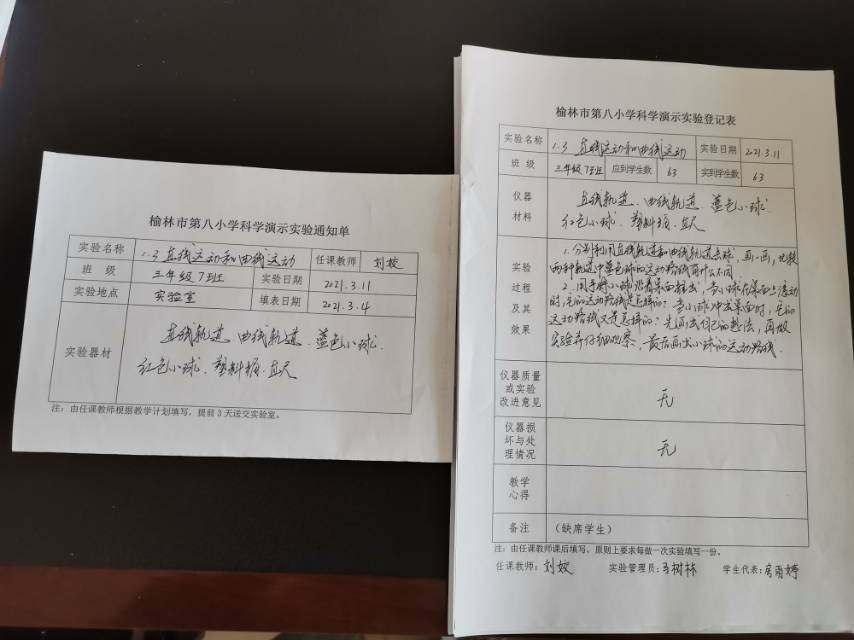 榆林市第八小学科学演示实验通知单
实验名称 1.3 直线运动和曲线运动 任课教师 刘姣
班 级 三年级7班 实验日期 2021.3.11
实验地点 实验室 填表日期 2021.3.4
实验器材 直线轨道、曲线轨道、蓝色小球、
红色小球、塑料板、直尺
注：由任课教师根据教学计划填写，提前3天送交实验室。
榆林市第八小学科学演示实验登记表
实验名称 1.3 直线运动和曲线运动 实验日期 2021.3.11
班 级 三年级7班 应到学生数 63 实到学生数 63
仪器材料 直线轨道、曲线轨道、蓝色小球、
红色小球、塑料板、直尺
实验过程及其效果 1.分别利用直线轨道和曲线轨道点球，画一画，比较
两种轨道中蓝色球的运动路线有什么不同。
2.用手将小球沿着桌面推出，当小球在桌面上滚动
时，它的运动路线是怎样的？当小球冲出桌面时，它的
运动路线又是怎样的？先画出自己的想法，再做
实验并仔细观察，最后画出小球的运动路线。
仪器质量或实验改进意见 无
仪器损坏与处理情况 无
教学心得
备注 （缺席学生）
注：由任课教师课后填写，原则上要求每做一次实验填写一份。
任课教师：刘姣 实验管理员：马树林 学生代表：雨婷